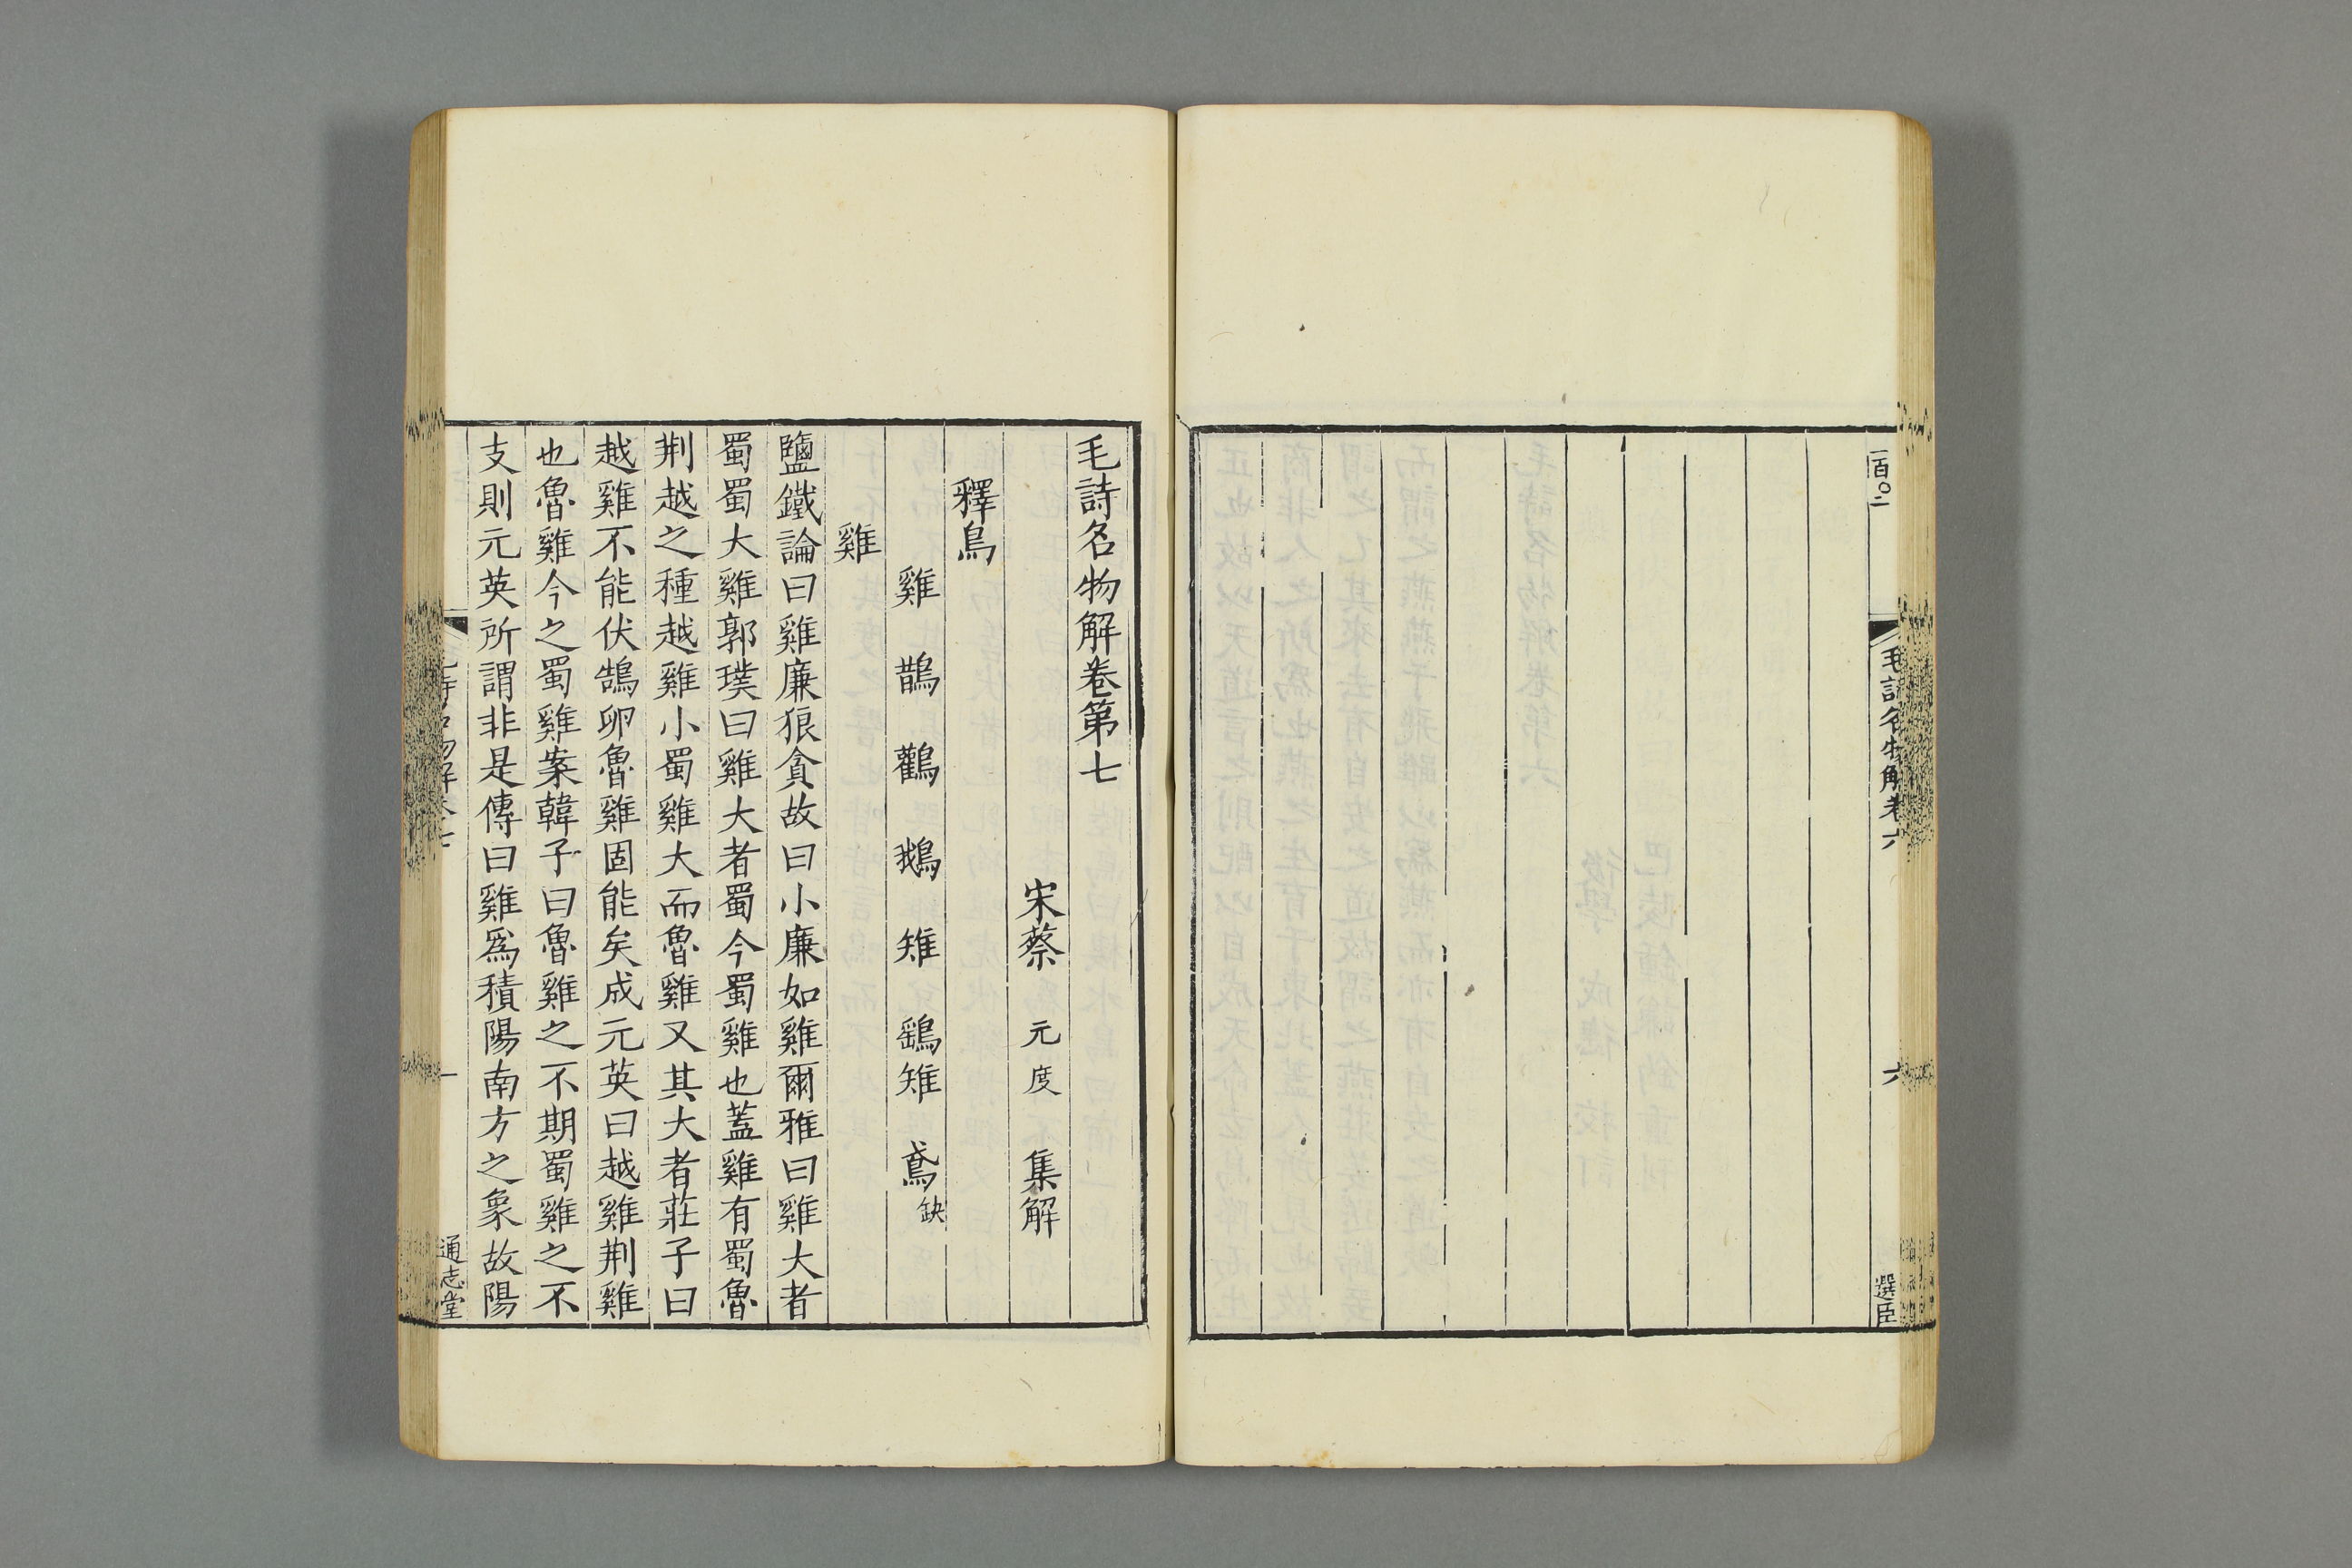 一百〇二
毛詩名物解卷六
六
選臣
毛詩名物解卷第七
宋蔡元度集解
釋鳥
雞 鵲 鸛 鵝 雉 鷂雉 鳶缺
雞
鹽鐵論曰雞廉狼貪故曰小廉如雞爾雅曰雞大者
蜀蜀大雞郭璞曰雞大者蜀今蜀雞也蓋雞有蜀魯
荆越之種越雞小蜀雞大而魯雞又其大者莊子曰
越雞不能伏鵠卵魯雞固能矣成元英曰越雞荆雞
也魯雞今之蜀雞案韓子曰魯雞之不期蜀雞之不
支則元英所謂非是傳曰雞爲積陽南方之象故陽
一
通志堂